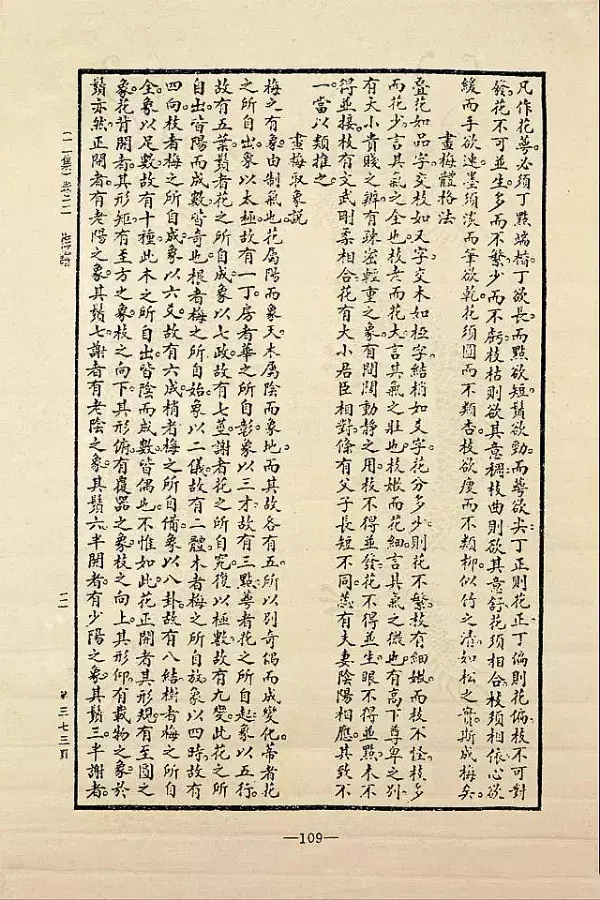 凡作花萼必須丁點端楷丁欲長而點欲短鬚欲勁而萼欲尖丁正則花正丁偏則花偏枝不可對
發花不可並生多而不繁少而不虧枝枯則欲其意稠枝曲則欲其意舒花須相合枝須相依心欲
緩而手欲速墨須淡而筆欲乾花須圓而不類杏枝欲瘦而不類柳似竹之清如松之實斯成梅矣
畫梅體格法
疊花如品字交枝如叉字交木如椏字結梢如爻字花分多少則花不繁枝有細嫩而枝不怪枝多
而花少言其氣之全也枝老而花大言其氣之壯也枝嫩而花細言其氣之微也有高下尊卑之別
有大小貴賤之辨有疎密輕重之象有間闊動靜之用枝不得並發花不得並生眼不得並點木不
得並接枝有文武剛柔相合花有大小君臣相對條有父子長短不同蕊有夫妻陰陽相應其致不
一當以類推之
畫梅取象說
梅之有象由制氣也花屬陽而象天木屬陰而象地而其故各有五所以別奇偶而成變化蒂者花
之所自出象以太極故有一丁房者華之所自彰象以三才故有三點萼者花之所自起象以五行
故有五葉鬚者花之所自成象以七政故有七莖謝者花之所自究復以極數故有九變此花之所
自出皆陽而成數皆奇也根者梅之所自始象以二儀故有二體木者梅之所自放象以四時故有
四向枝者梅之所自成象以六爻故有六成梢者梅之所自備象以八卦故有八結樹者梅之所自
全象以足數故有十種此木之所自出皆陰而成數皆偶也不惟如此花正開者其形規有至圓之
象花背開者其形矩有至方之象枝之向下其形俯有覆器之象枝之向上其形仰有載物之象於
鬚亦然正開者有老陽之象其鬚七謝者有老陰之象其鬚六半開者有少陽之象其鬚三半謝者
(二集)卷二 梅譜 二 第三七三頁
—109—